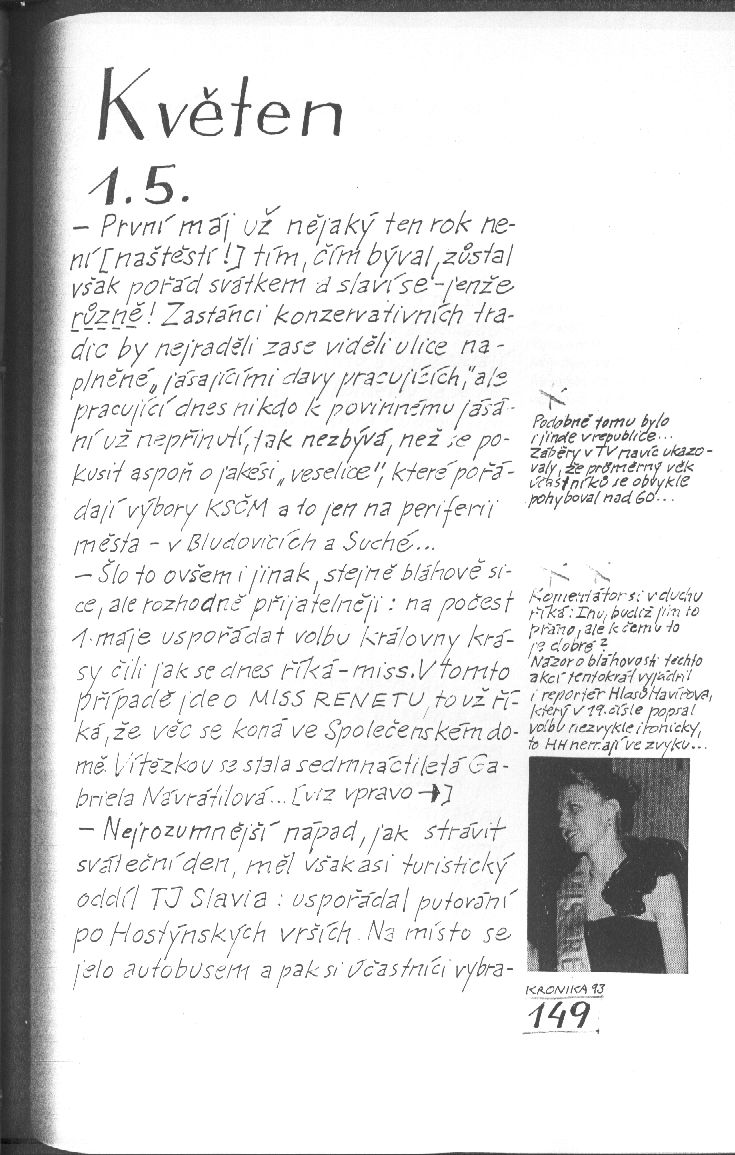 Květen
1.5.
– První máj už nějaký ten rok ne-
ní [naštěstí!] tím, čím býval, zůstal
však pořád svátkem a slaví se – jenže
různě! Zastánci konzervativních tra-
dic by nejraději zase viděli ulice na-
plněné „jásajícími davy pracujících," ale
pracující dnes nikdo k povinnému jásá-
ní už nepřinutí, tak nezbývá, než se po-
kusit aspoň o jakési „veselice", které pořá-
dají výbory KSČM a to jen na periferii
města – v Bludovicích a Suché...
– Šlo to ovšem i jinak, stejně bláhově si-
ce, ale rozhodně přijatelněji: na počest
1. máje uspořádat volbu královny krá-
sy čili jak se dnes říká – miss. V tomto
případě jde o MISS RENETU, to už ří-
ká, že věc se koná ve Společenském do-
mě. Vítězkou se stala sedmnáctiletá Ga-
briela Návrátilová... [viz vpravo →]
– Nejrozumnější nápad, jak strávit
sváteční den, měl však asi turistický
oddíl TJ Slavia: uspořádal putování
po Hostýnských vrších. Na místo se
jelo autobusem a pak si účastníci vybra-
X
Podobně tomu bylo
i jinde v republice...
Záběry v TV navíc ukazo-
valy, že průměrný věk
účastníků se obvykle
pohyboval nad 60...
X X
Komentátor si v duchu
říká: Inu, budiž jim to
přáno, ale k čemu to
je dobré?
Názor o bláhovosti těchto
akcí tentokrát vyjádřil
i reportér Hlasu Havířova,
který v 19. čísle popsal
volbu nezvykle ironicky,
to HH nemají ve zvyku...
KRONIKA 93
149